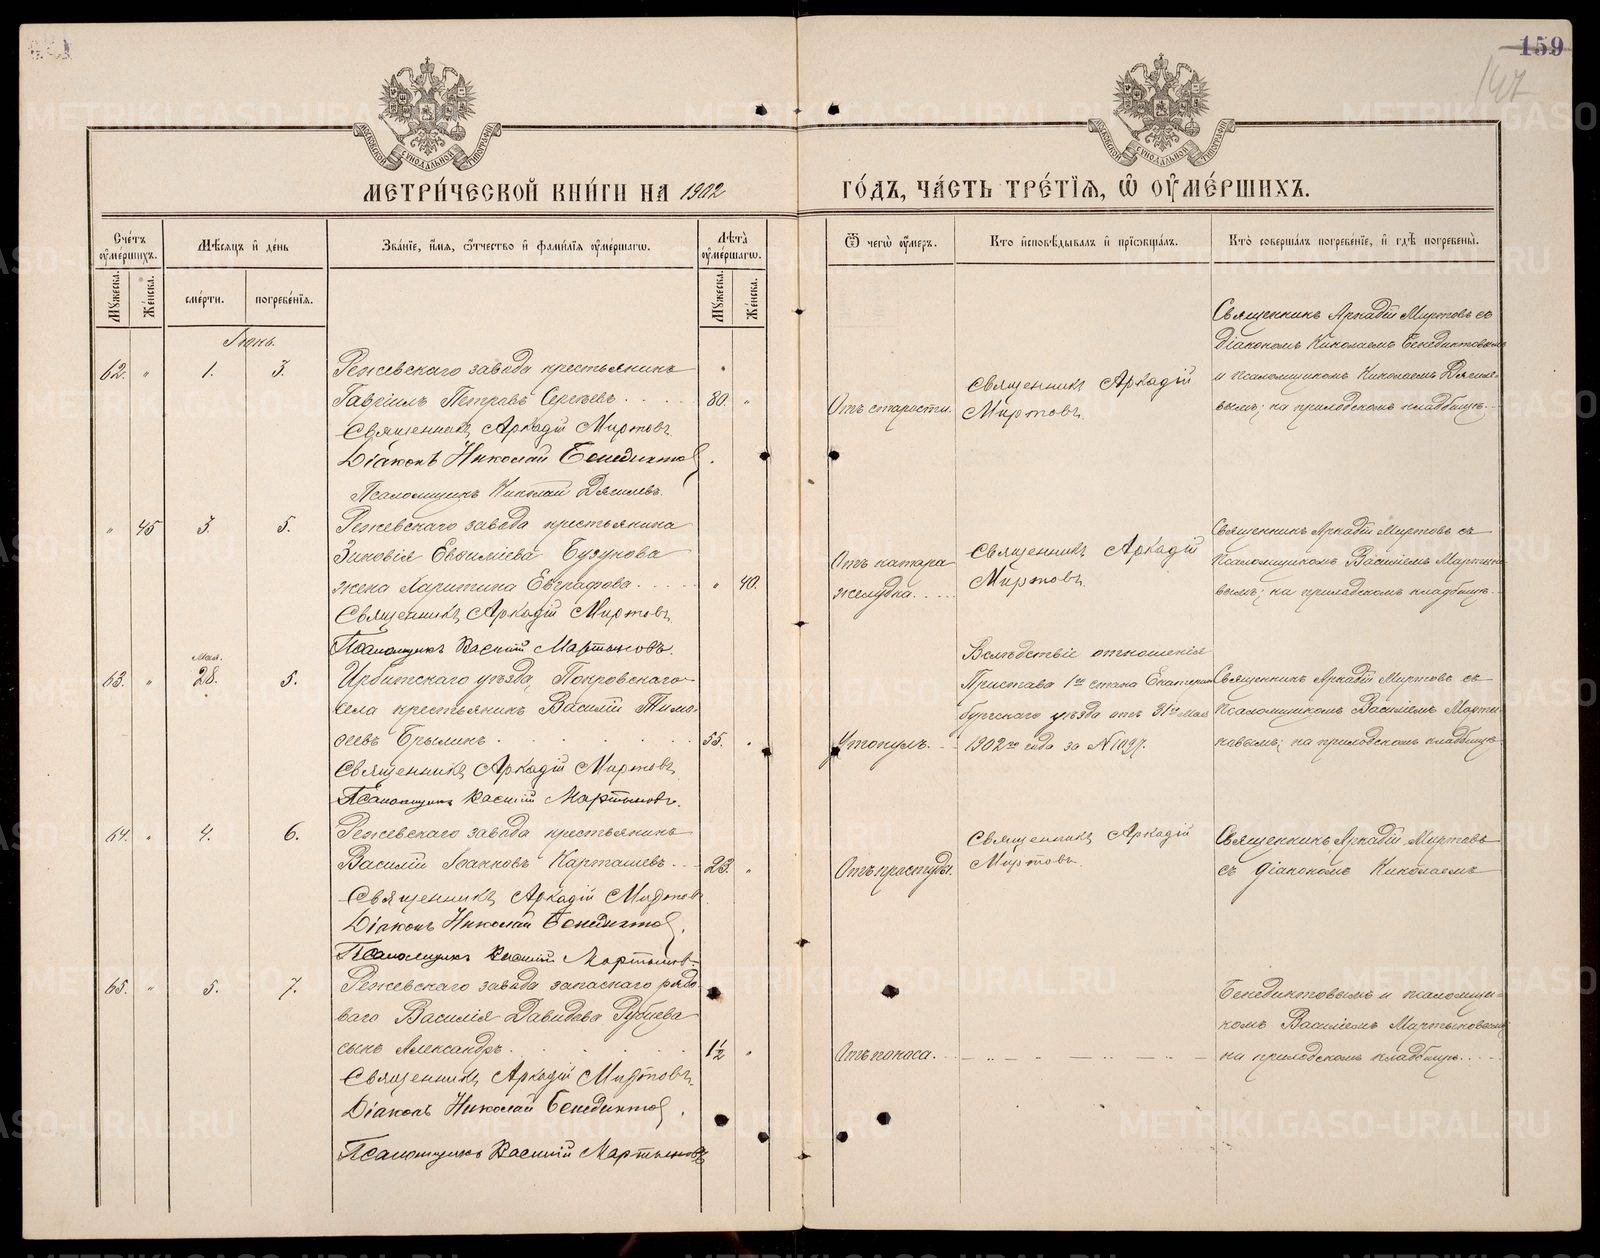 159
147
МОСКОВСКОЙ СѴНОДАЛЬНОЙ ТИПОГРАФІИ
МОСКОВСКОЙ СѴНОДАЛЬНОЙ ТИПОГРАФІИ
МЕТРИ́ЧЕСКОЙ КНИ́ГИ НА 1902
ГО́ДЪ, ЧА́СТЬ ТРЕ́ТІѦ, Ѡ ОУМЕ́РШИХЪ.
Счетъ оумершихъ.
Мужеска.
Женска.
Мѣсяцъ и день
смерти.
погребенія.
Званіе, имя, отчество и фамилія оумершагѡ.
Лѣта оумершагѡ.
Мужеска.
Женска.
Ѿ чегѡ оумеръ.
Кто исповѣдывалъ и пріобщалъ.
Кто совершалъ погребеніе, и гдѣ погребены.
Іюнь.
62. " 1. 3. Режевскаго завода крестьянинъ
Гавріилъ Петровъ Сергѣевъ 80. "
Священникъ Аркадій Миртовъ
Діаконъ Николай Бенедиктов.
Псаломщикъ Николай
Отъ старости.
Священникъ Аркадій
Миртовъ
Священникъ Аркадій Миртовъ съ
Діакономъ Николаемъ Бенедиктовымъ
и псаломщикомъ Николаемъ
вымъ; на приходскомъ кладбищѣ.
" 45 3. 5. Режевскаго завода крестьянина
Зиновія Евѳиміева Бузунова
жена Харитина Евграфова. " 40.
Священникъ Аркадій Миртовъ
Псаломщикъ Василій Мартыновъ.
Отъ катара
желудка.
Священникъ Аркадій
Миртовъ
Священникъ Аркадій Миртовъ съ
Псаломщикомъ Василіемъ Мартыно-
вымъ; на приходскомъ кладбищѣ.
63. " Мая. 28. 5. Ирбитскаго уѣзда, Покровскаго
села крестьянинъ Василій Тимо-
ѳеевъ Брылинъ 55. "
Священникъ Аркадій Миртовъ
Псаломщикъ Василій Мартыновъ.
Утонулъ.
Вслѣдствіе отношенія
Пристава 1го стана Екатерин
бургскаго уѣзда отъ 31го мая
1902го года за № 1097.
Священникъ Аркадій Миртовъ съ
Псаломщикомъ Василіемъ Марты-
новымъ; на приходскомъ кладбищѣ
64. " 4. 6. Режевскаго завода крестьянинъ
Василій Іоанновъ Карташевъ 23. "
Священникъ Аркадій Миртовъ
Діаконъ Николай Бенедиктов.
Псаломщикъ Василій Мартынов.
Отъ простуды.
Священникъ Аркадій
Миртовъ.
Священникъ Аркадій Миртовъ
съ діакономъ Николаемъ
65. " 5. 7. Режевскаго завода запаснаго рядо-
ваго Василія Давидова Рубцева
сынъ Александръ. 1½ "
Священникъ Аркадій Миртовъ.
Діаконъ Николай Бенедиктов.
Псаломщикъ Василій Мартыновъ
Отъ поноса.
Бенедиктовымъ и псаломщи-
комъ Василіемъ Мартыновымъ
на приходскомъ кладбищѣ.